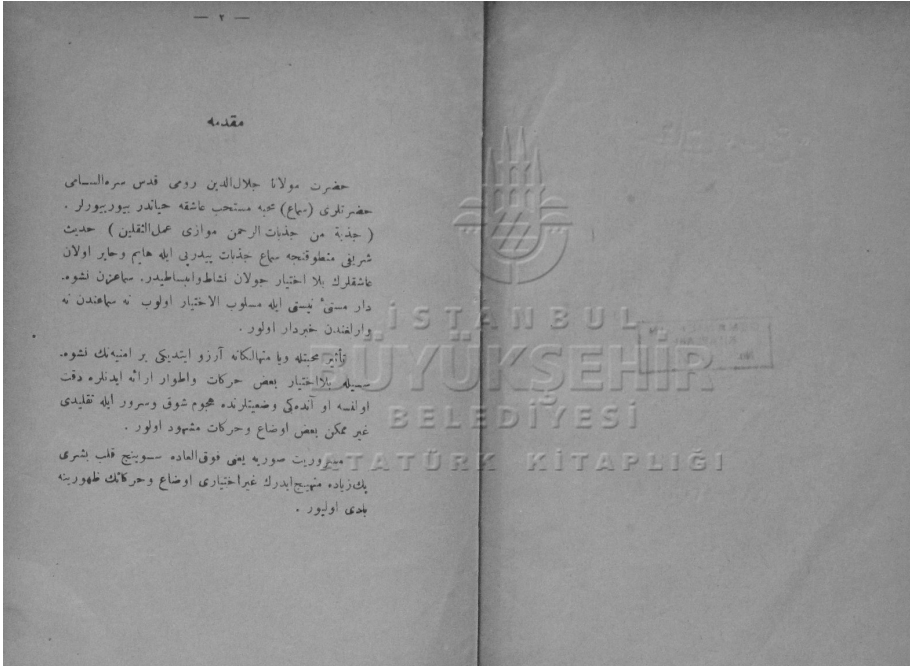 — ٢ —
مقدمه
حضرت مولانا جلال‌الدین رومی قدس سره‌السامی
حضرتلری (سماع) محبه مستحب عاشقه حیاتدر بیوریبورلر .
( جذبة من جذبات الرحمن موازی عمل‌الثقلین ) حدیث
شریفی منطوقنجه سماع جذبات پیدرپی ایله هایم وحایر اولان
عاشقلرك بلا اختیار جولان نشاط‌وانبساطیدر. سماعزن نشوه‌
دار مستیٔ نیستی ایله مسلوب الاختیار اولوب نه سماعندن نه
وارلغندن خبردار اولور .
تأثیر محبتله ویا متهالكانه آرزو ایتدیكی بر امنیه‌نك نشوه‌
سیله بلااختیار بعض حركات واطوار ارائه ایدنلره دقت
اولنسه او آنده‌كی وضعیتلرنده هجوم شوق وسرور ایله تقلیدی
غیر ممكن بعض اوضاع وحركات مشهود اولور .
مسروریت صوریه یعنی فوق‌العاده سوینج قلب بشری
پك‌زیاده متهیج‌ایدرك غیراختیاری اوضاع وحركاتك ظهورینه
بادی اولیور .
İSTANBUL
BÜYÜKŞEHİR
BELEDİYESİ
ATATÜRK KİTAPLIĞI